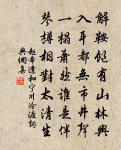 解鞍饒有山林興
入耳都無市井聲
一榻蕭然誰是伴
琴樽相對太清生
趙希逢和寧川冷渡詞